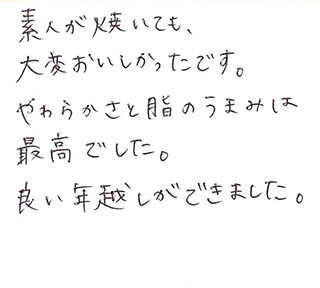 素人が焼いても、
大変おいしかったです。
やわらかさと脂のうまみは
最高でした。
良い年越しができました。